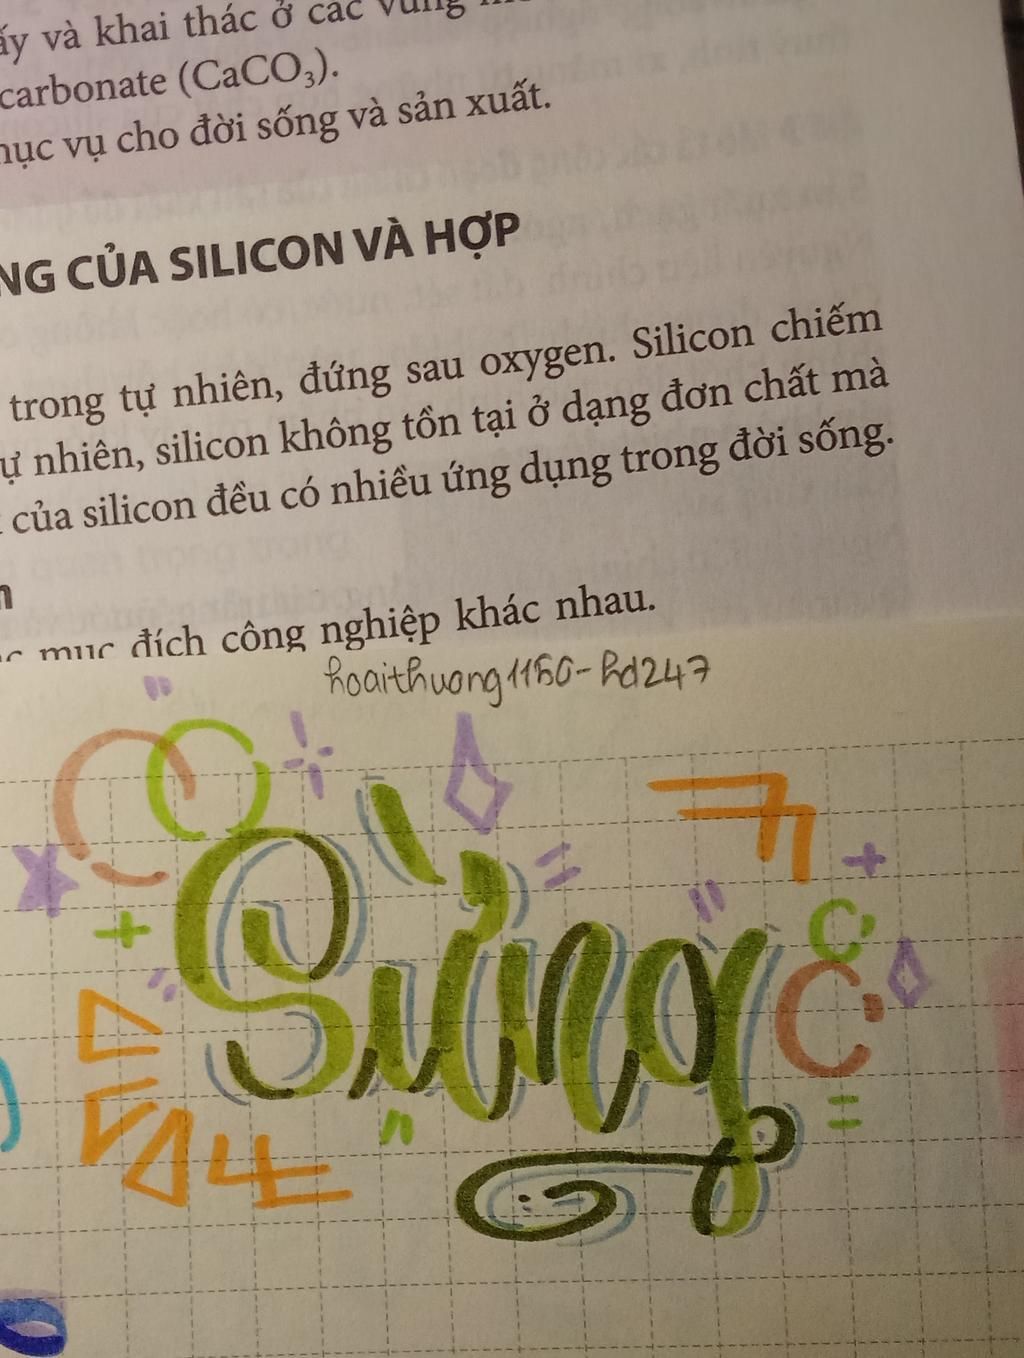 ấy và khai thác ở các vùng
carbonate (CaCO₃).
hục vụ cho đời sống và sản xuất.
NG CỦA SILICON VÀ HỢP
trong tự nhiên, đứng sau oxygen. Silicon chiếm
ự nhiên, silicon không tồn tại ở dạng đơn chất mà
của silicon đều có nhiều ứng dụng trong đời sống.
mục đích công nghiệp khác nhau.
hoaithuong1150-hd247
Sừng